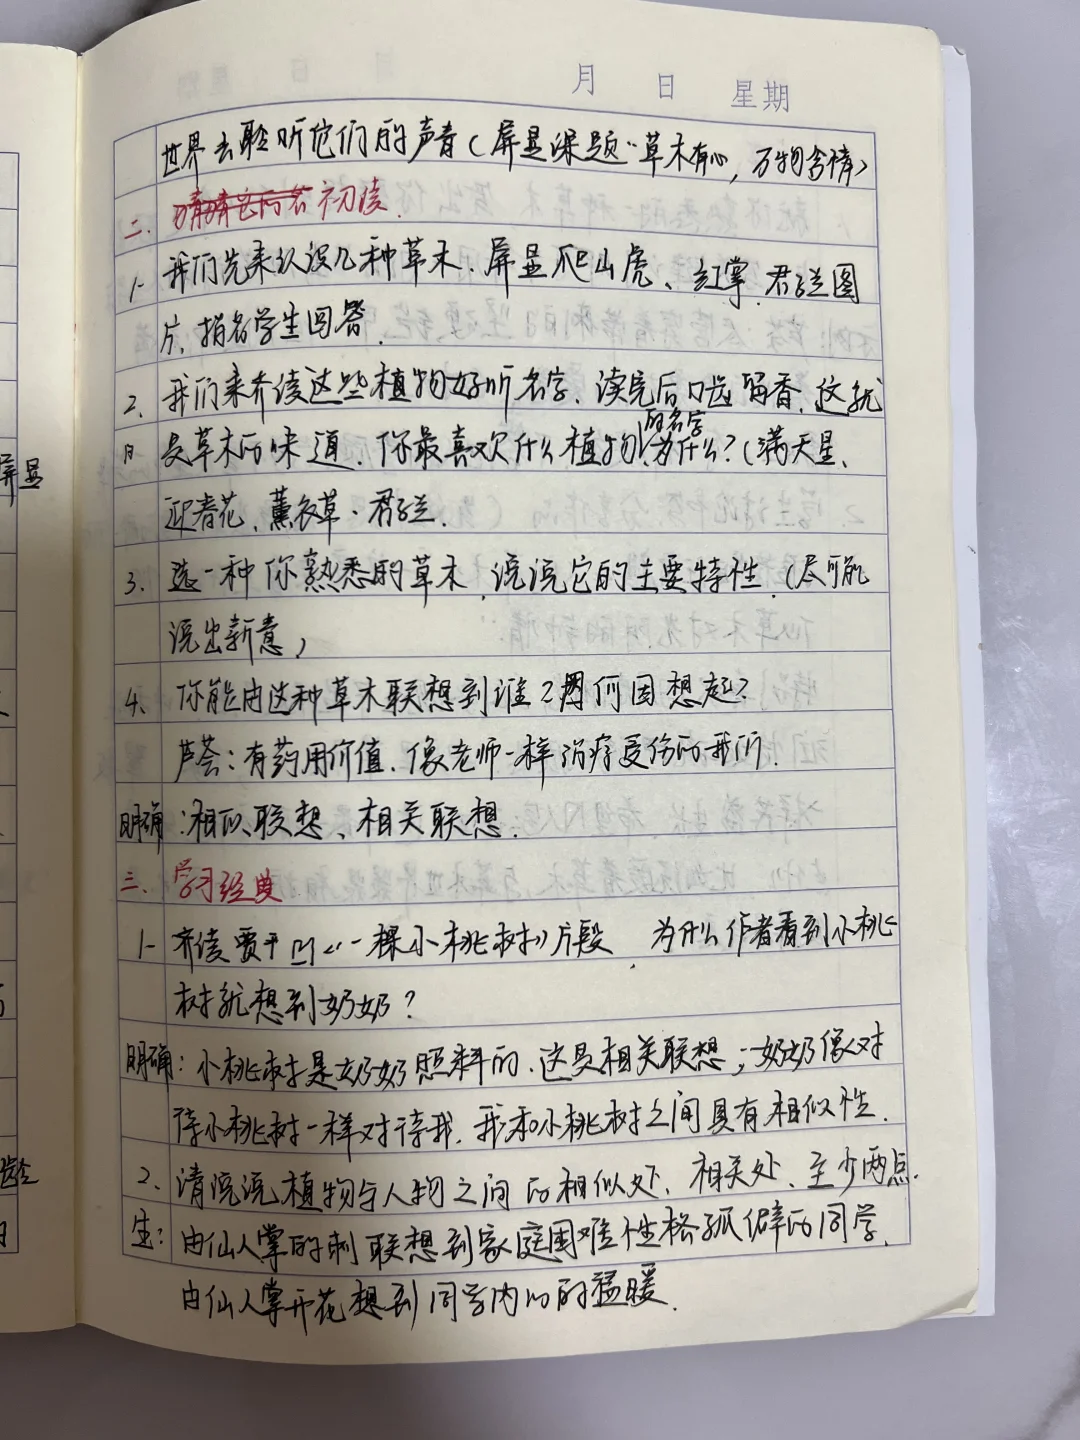 月 日 星期
世界去聆听它们的声音(屏显课题“草木有心,万物含情)
二. 初读.
1- 我们先来认识几种草木.屏显爬山虎、红掌.君子兰图
片,指名学生回答.
2、我们来齐读这些植物好听名字.读完后口齿留香.这就
是草木的味道.你最喜欢什么植物的名字,为什么?(满天星、
迎春花、薰衣草.君子兰.
3、选一种你熟悉的草木,说说它的主要特性.(尽可能
说出新意)
4、你能由这种草木联想到谁?因何因想起?
芦荟:有药用价值.像老师一样治疗受伤的我们.
明确:相似联想、相关联想.
三、学习经典
1- 齐读贾平凹《一棵小桃树》片段.为什么作者看到小桃
树就想到奶奶?
明确:小桃树是奶奶照料的.这是相关联想;奶奶像对
待小桃树一样对待我.我和小桃树之间具有相似性.
2、请说说植物与人物之间的相似处、相关处、至少两点.
生:由仙人掌的刺联想到家庭困难性格孤僻的同学.
由仙人掌开花想到同学内心的温暖.
屏显
龄